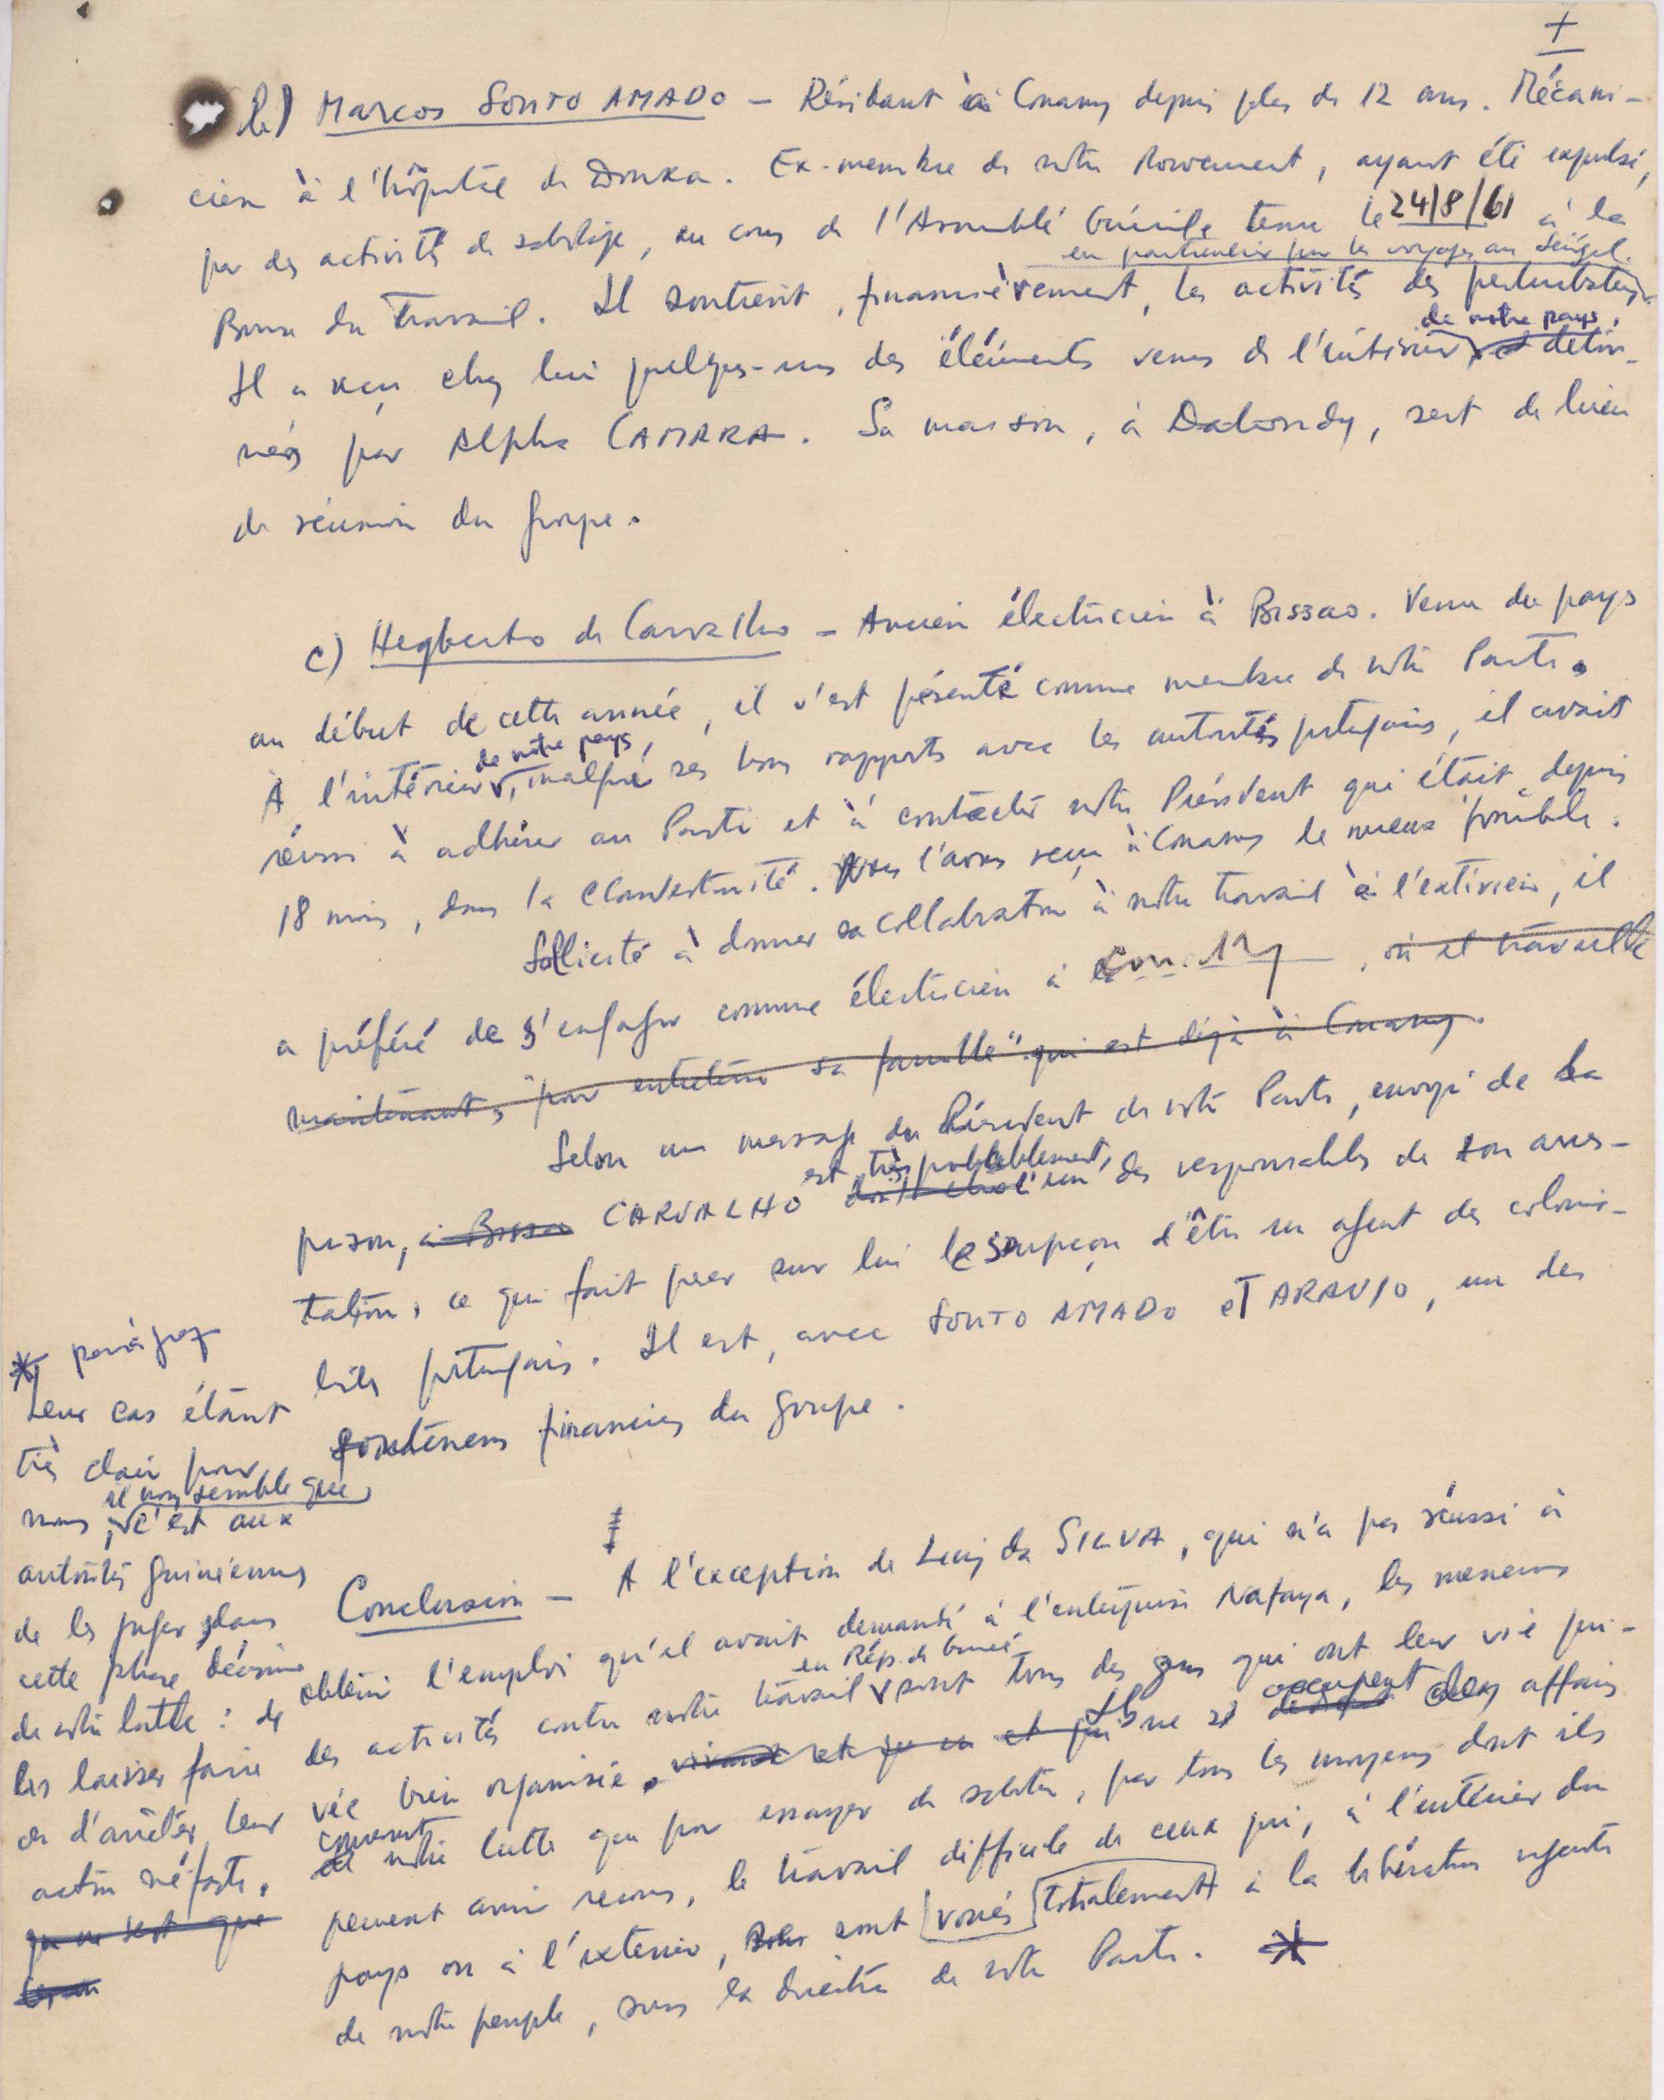 +
b) Marcos SOUTO AMADO – Résidant à Conakry depuis plus de 12 ans. Mécani-
cien à l'hôpital de Donka. Ex-membre de notre Mouvement, ayant été expulsé,
par des activités de sabotage, au cours de l'Assemblé Générale tenue le 24/8/61 à la
en particulier pour les voyages au Sénégal.
Bourse du Travail. Il soutient, financièrement, les activités des perturbateurs
de notre pays,
Il a reçu chez lui quelques-uns des éléments venus de l'intérieur et détour-
nés par Alpha CAMARA. Sa maison, à Dabondy, sert de lieu
de réunion du groupe.
c) Hegberto de Carvalho – Ancien électricien à Bissao. Venu du pays
au début de cette année, il s'est présenté comme membre de notre Parti.
de notre pays,
A l'intérieur, malgré ses bons rapports avec les autorités portugais, il avait
réussi à adhérer au Parti et à contacter notre Président qui était, depuis
18 mois, dans la clandestinité. Nous l'avons reçu à Conakry le mieux possible.
Sollicité à donner sa collaboration à notre travail à l'extérieur, il
a préféré de s'engager comme électricien à Conakry, où il travaille
maintenant, "pour entretenir sa famille" qui est déjà à Conakry.
Selon un message du Président de notre Parti, envoyé de la
est, très probablement,
prison, à Bissao CARVALHO l'un des responsables de son arres-
tation, ce qui fait peser sur lui le soupçon d'être un agent des colonia-
listes portugais. Il est, avec SOUTO AMADO et ARAUJO, un des
souteneurs financiers du groupe.
Conclusion – A l'exception de Luiz da SILVA, qui n'a pas réussi à
obtenir l'emploi qu'il avait demandé à l'entreprise Nafaya, les meneurs
en Rép. de Guinée
des activités contre notre travail sont tous des gens qui ont leur vie pri-
vée bien organisée, vivant et qui Ils ne s' occupent des affaires
concernant
de notre lutte que pour essayer de saboter, par tous les moyens dont ils
peuvent avoir recours, le travail difficile de ceux qui, à l'intérieur du
pays ou à l'extérieur, sont voués totalement à la libération urgente
de notre peuple, sous la direction de notre Parti. *
* paragraphe
Leur cas étant
très clair pour
il nous semble que
nous, c'est aux
autorités guinéennes
de les juger dans
cette phase décisive
de notre lutte : de
les laisser faire
ou d'arrêter leur
action néfaste,
qui ne sert que